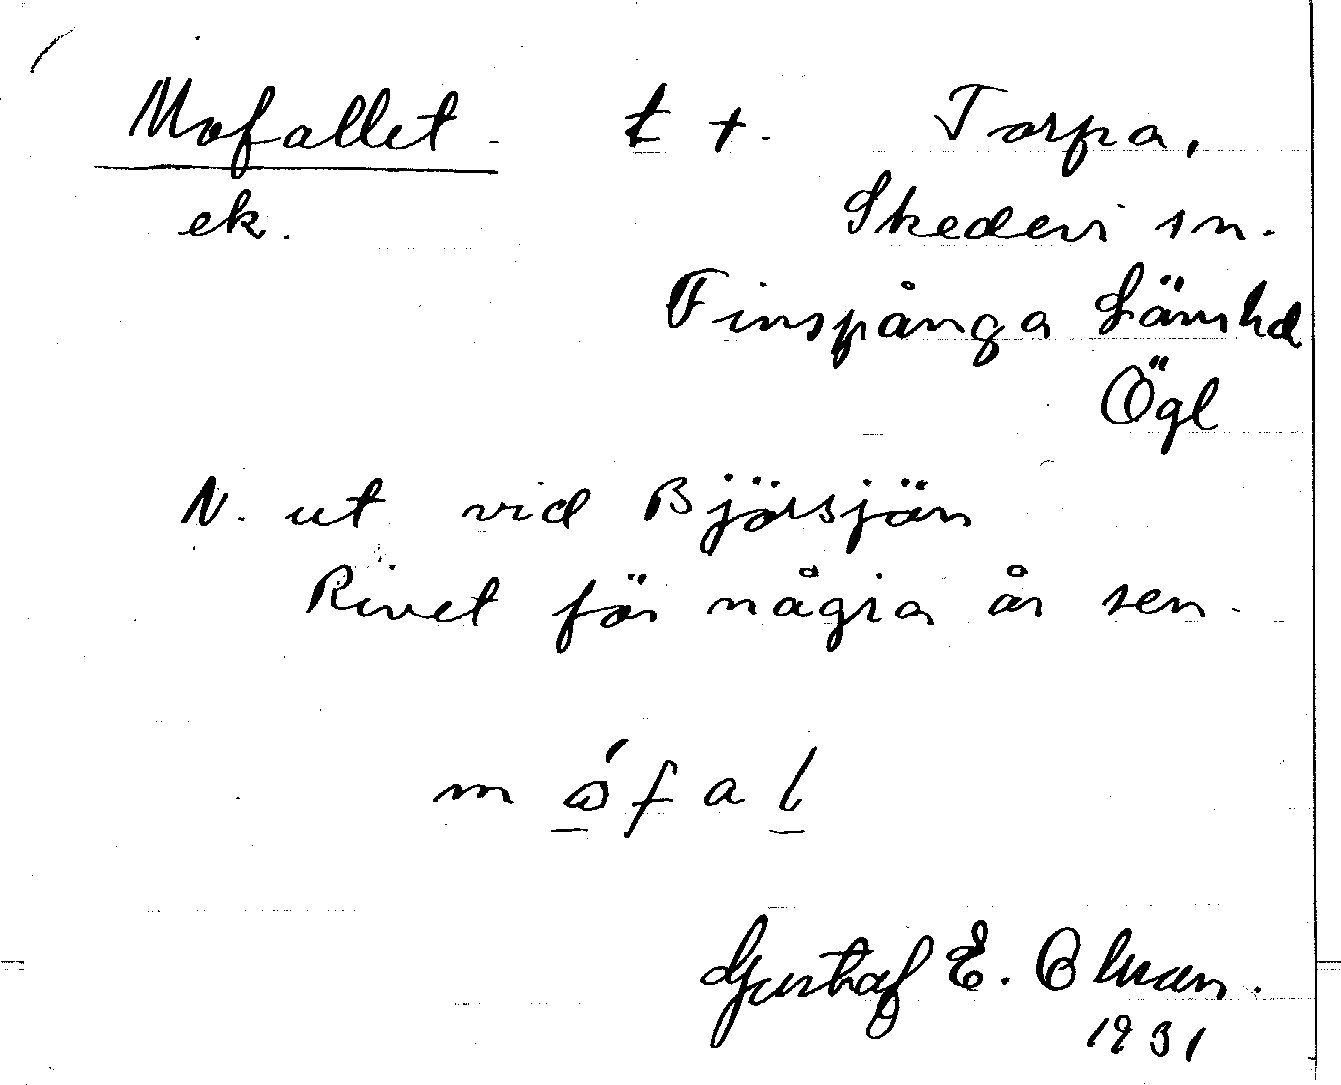 Mofallet t +. Torpa,
ek. Skedevi sn.
Finspånga Länshd
Ögl
N. ut vid Björsjön
Rivet för några år sen.
mófal
Gustaf E. Olsson.
1931